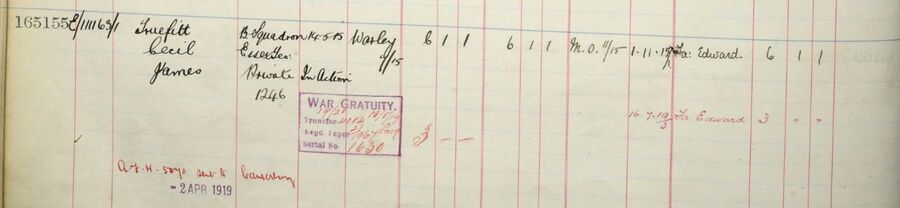 165155 E/111163/1 Truefitt B. Squadron 14.5.15 Warley 6 1 1 6 1 1 M.O. 11/15 1.11.15 Fa: Edward. 6 1 1
Cecil Essex Yeo: 9/15
James Private In Action
1246
WAR GRATUITY.
Transfer
Regd. Paper
Serial No. 1630
3 - -
16.7.19 Fa Edward 3 - -
sent to Canterbury
- 2 APR 1919